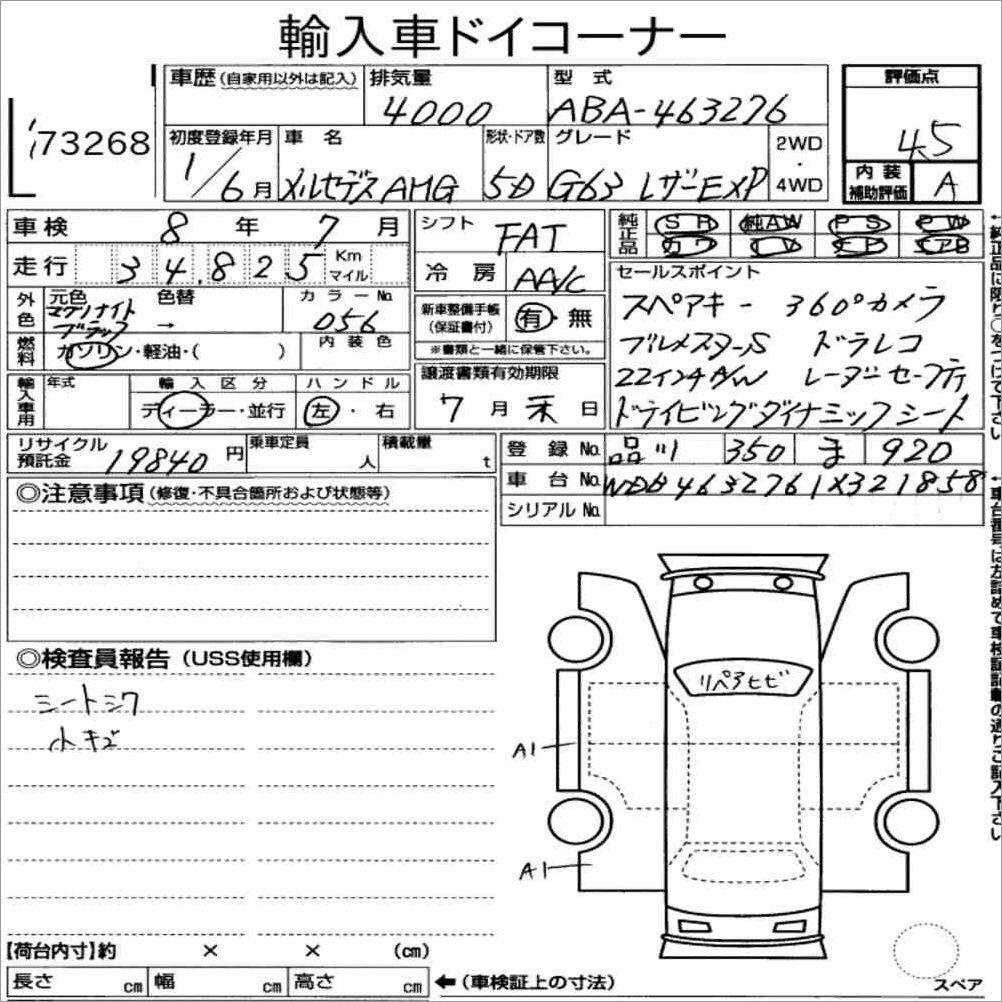 輸入車ドイコーナー
73268
車歴(自家用以外は記入)
排気量
4000
型式
ABA-463276
評価点
4.5
内装補助評価
A
初度登録年月
1/6月
車名
メルセデスAMG
形状・ドア数
5D
グレード
G63 レザーEXP
2WD
・
4WD
車検 8年 7月
走行 34,825 Km マイル
シフト
FAT
冷房
AA/C
純正品
SR 純AW PS PW
カワ TV ナビ エアB
外色
元色
マグノナイト
ブラック
色替
→
カラーNo
056
内装色
燃料
ガソリン・軽油・( )
新車整備手帳
(保証書付)
有・無
※書類と一緒に保管下さい。
セールスポイント
スペアキー 360°カメラ
ブルメスターS ドラレコ
22インチA/W レーダーセーフティ
ドライビングダイナミックシート
輸入車用
年式
輸入区分
ディーラー・並行
ハンドル
左・右
譲渡書類有効期限
7月末日
リサイクル預託金 19840円
乗車定員
人
積載量
t
登録No. 品川 350 ま 920
車台No. WDB4632761X321858
シリアルNo.
◎注意事項(修復・不具合箇所および状態等)
◎検査員報告(USS使用欄)
シートシワ
小キズ
リペアヒビ
A1
A1
【荷台内寸】約 × × (cm)
長さ cm 幅 cm 高さ cm ←(車検証上の寸法)
スペア
↑純正品に限り○をつけて下さい
↑車台番号は左詰めで車検証記載の通りご記入下さい